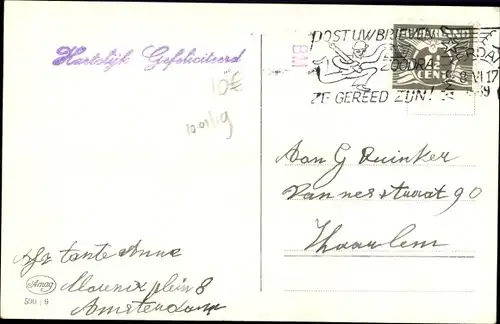 Hartelijk Gefeliciteerd
10€
POST UW BRIEVEN
ZOODRA
ZE GEREED ZIJN!
NEDERLAND
CENT
Aan G Quinker
Pannerstraat 90
Haarlem
Afz tante Anna
Marnixplein 8
Amsterdam
Amag
590 | 6